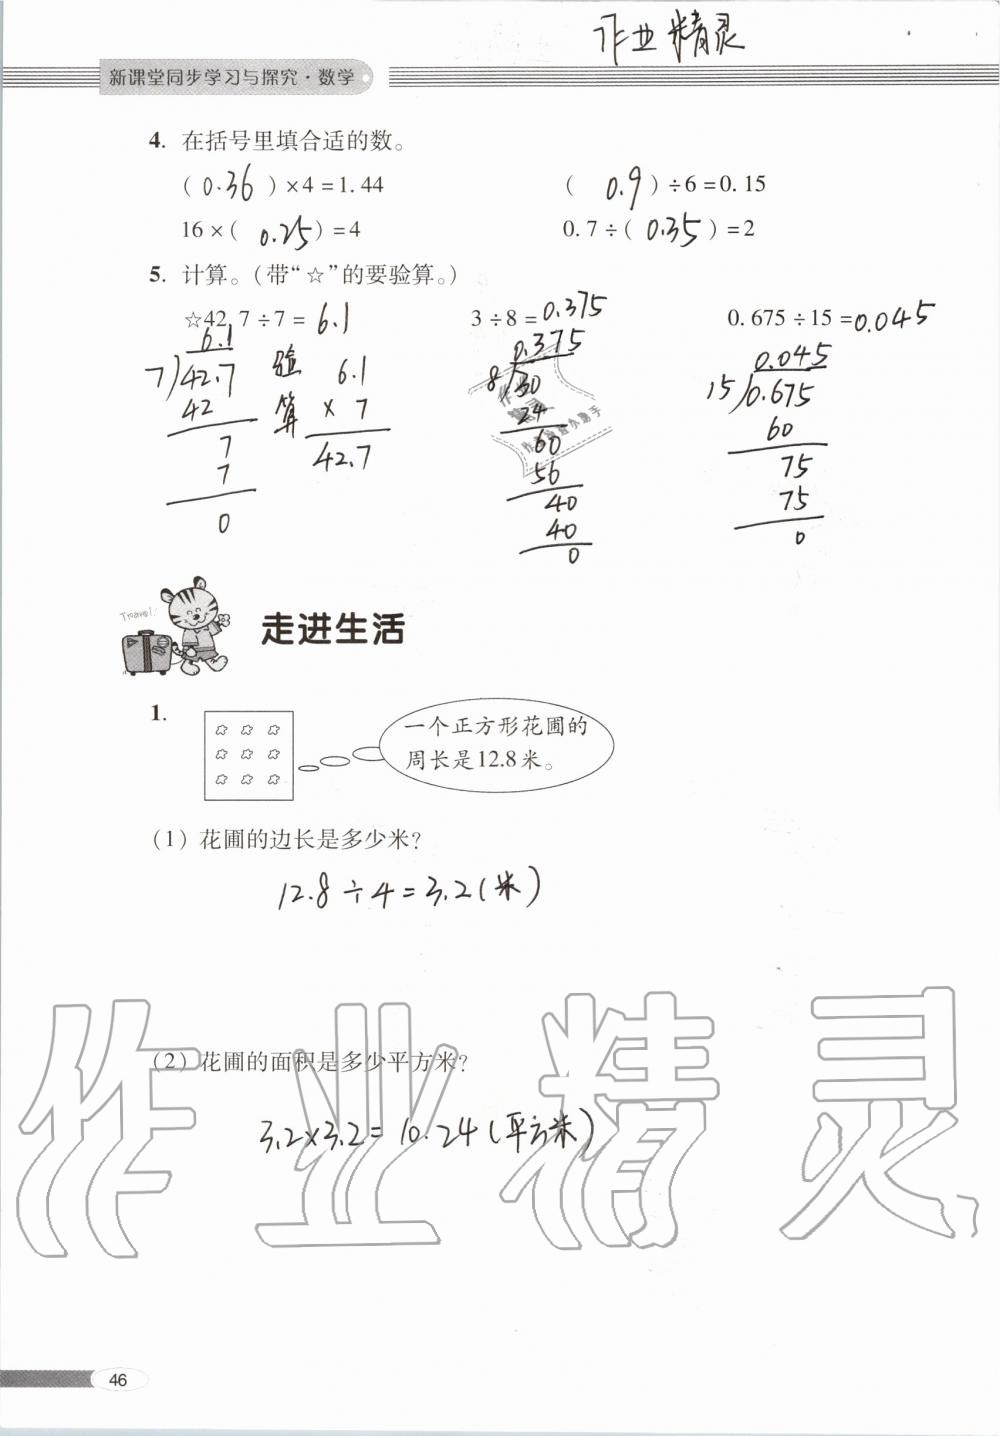 作业精灵
新课堂同步学习与探究·数学
4. 在括号里填合适的数。
(0.36)×4=1.44 (0.9)÷6=0.15
16×(0.25)=4 0.7÷(0.35)=2
5. 计算。(带“☆”的要验算。)
☆42.7÷7=6.1 3÷8=0.375 0.675÷15=0.045
6.1 0.375 0.045
7)42.7 验 6.1 8)30 15)0.675
42 算 ×7 24 60
7 42.7 60 75
7 56 75
0 40 0
40
0
Travel!
走进生活
1.
一个正方形花圃的
周长是12.8米。
(1) 花圃的边长是多少米?
12.8÷4=3.2(米)
(2) 花圃的面积是多少平方米?
3.2×3.2=10.24(平方米)
作业精灵
46